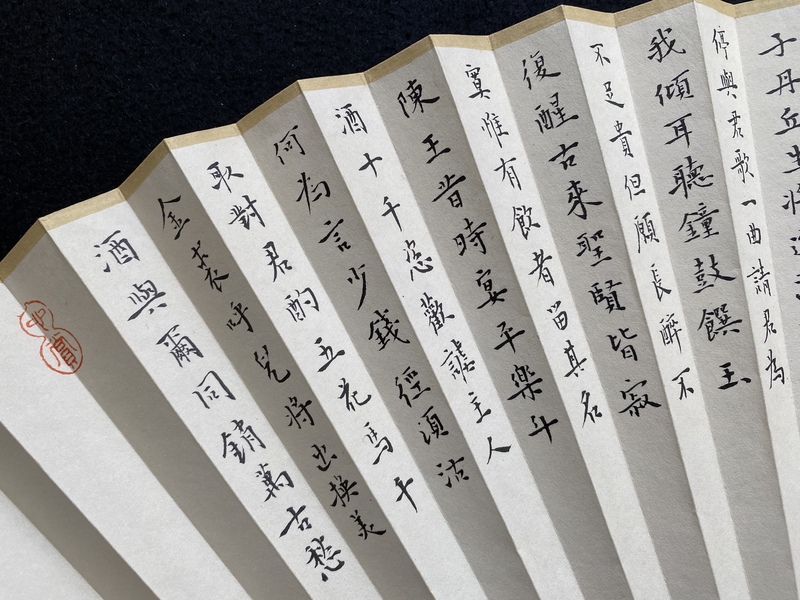 子丹丘生將進
停與君歌一曲請君為
我傾耳聽鐘鼓饌玉
不足貴但願長醉不
復醒古來聖賢皆寂
寞惟有飲者留其名
陳王昔時宴平樂斗
酒十千恣歡謔主人
何為言少錢徑須沽
取對君酌五花馬千
金裘呼兒將出換美
酒與爾同銷萬古愁